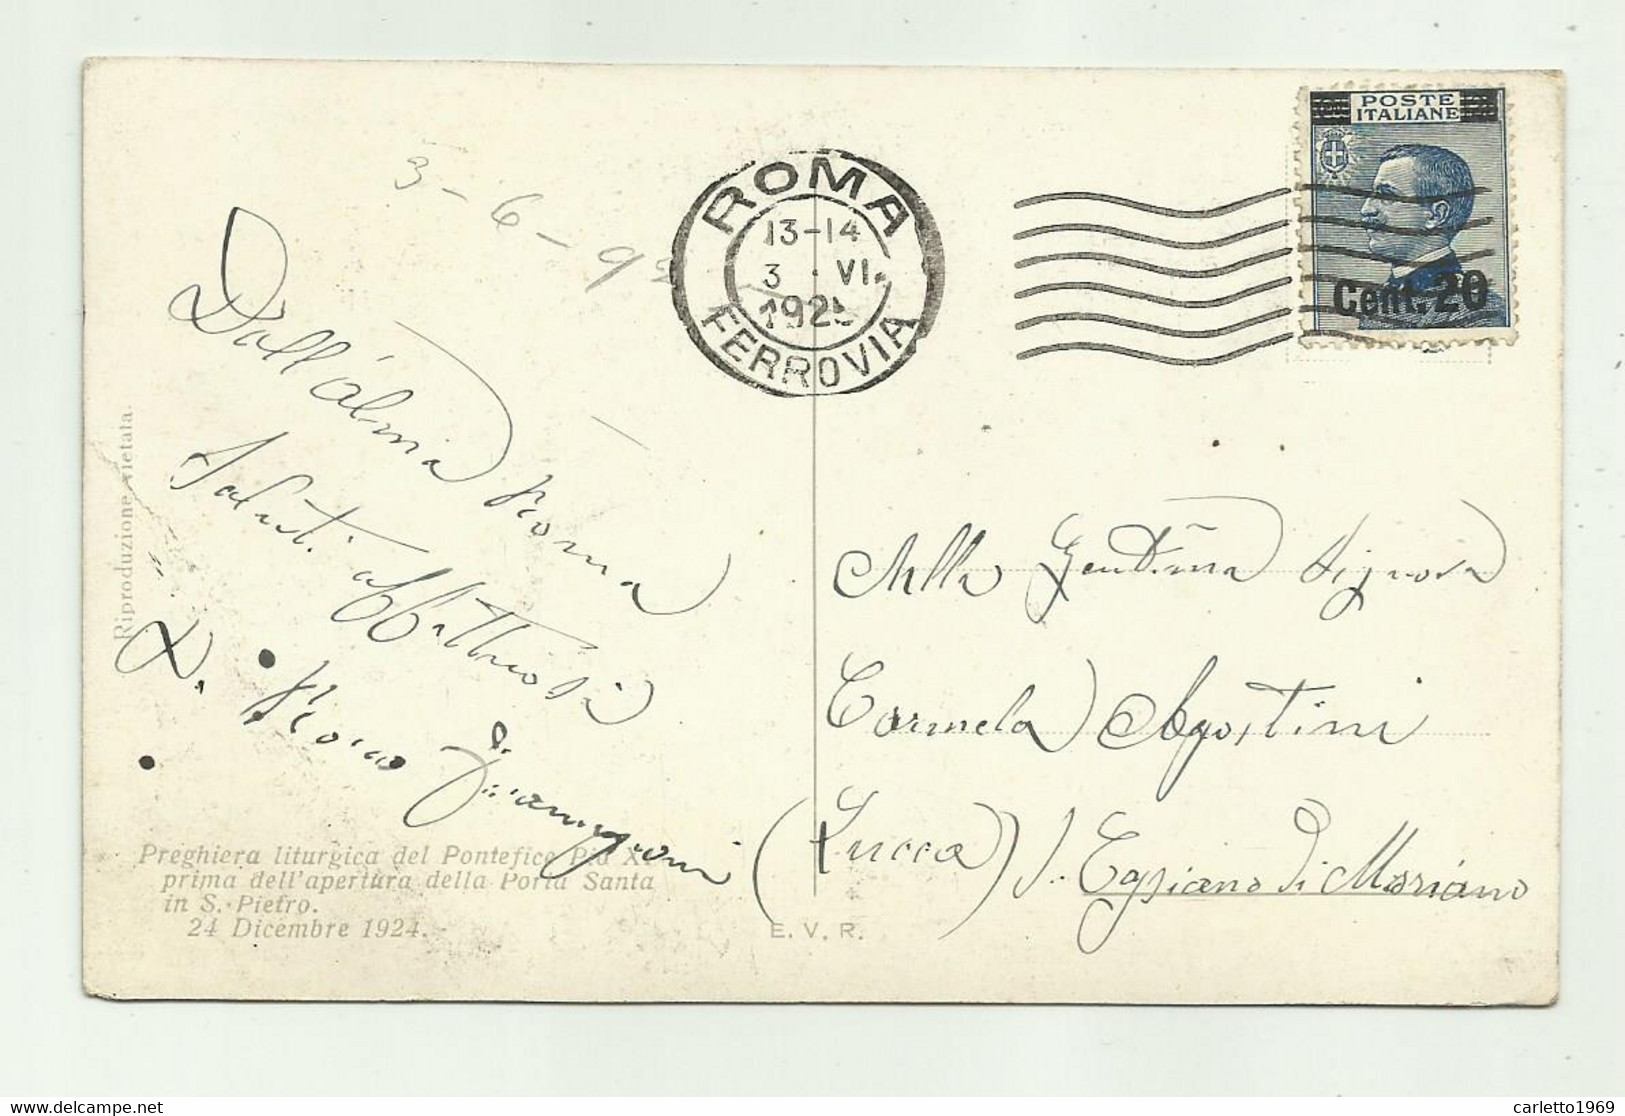 3-6-92
ROMA
13-14
3 VI.
FERROVIA
POSTE
ITALIANE
Cent. 20
Dall'alma Roma
Saluti affettuosi
D. Rocco
Alla Gentilma Signora
Carmela Agostini
(Lucca) S. Cassiano Di Moriano
Riproduzione vietata.
Preghiera liturgica del Pontefice Pio XI
prima dell'apertura della Porta Santa
in S. Pietro.
24 Dicembre 1924.
E. V. R.
carletto1969
delcampe.net